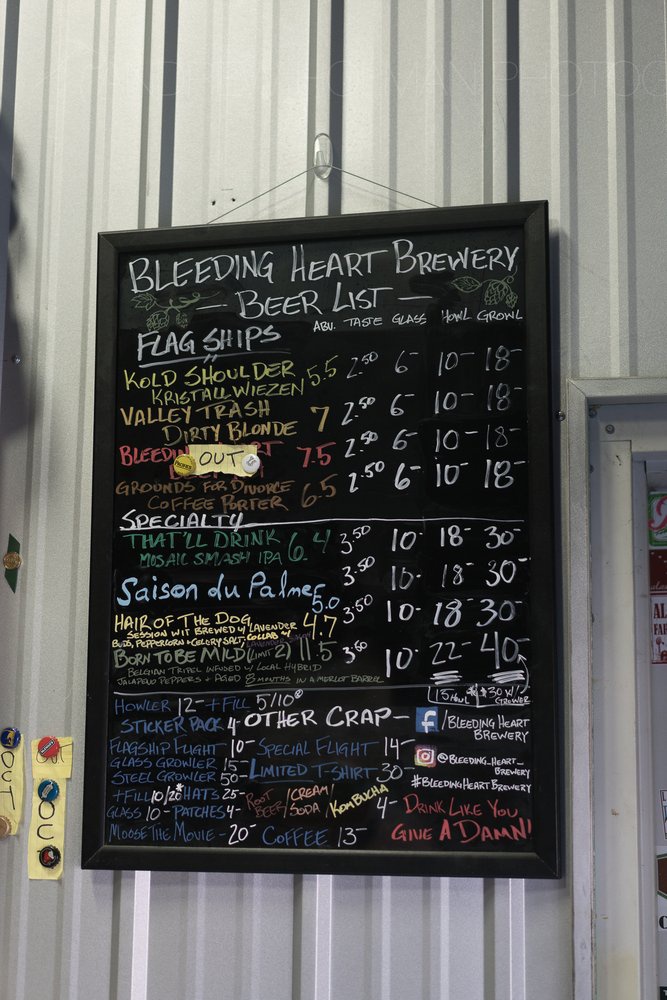 BLEEDING HEART BREWERY
— BEER LIST —
ABV. TASTE GLASS HOWL GROWL
FLAGSHIPS
KOLD SHOULDER
KRISTALLWIEZEN 5.5 2.50 6- 10- 18-
VALLEY TRASH
DIRTY BLONDE 7 2.50 6- 10- 18-
BLEEDIN OUT RT 7.5 2.50 6- 10- 18-
GROUNDS FOR DIVORCE
COFFEE PORTER 6.5 2.50 6- 10- 18-
SPECIALTY
THAT'LL DRINK
MOSAIC SMASH IPA 6.4 3.50 10- 18- 30-
Saison du Palmer 5.0 3.50 10- 18- 30-
HAIR OF THE DOG 4.7 3.50 10- 18- 30-
SESSION WIT BREWED W/ LAVENDER
BUDS, PEPPERCORN & CELERY SALT, COLLAB W/
BORN TO BE MILD (LIMIT 2) 11.5 3.50 10- 22- 40-
BELGIAN TRIPEL INFUSED W/ LOCAL HYBRID
JALAPENO PEPPERS & AGED 8 MONTHS IN A MERLOT BARREL
$30 W/
GROWLER
HOWLER 12- +FILL 5/10
STICKER PACK 4- OTHER CRAP-
f /BLEEDING HEART
BREWERY
FLAGSHIP FLIGHT 10- SPECIAL FLIGHT 14-
GLASS GROWLER 15-
STEEL GROWLER 50- LIMITED T-SHIRT 30-
@BLEEDING_HEART_
BREWERY
+FILL 10/20 HATS 25- ROOT BEER/CREAM SODA/KOMBUCHA 4-
#BLEEDINGHEARTBREWERY
GLASS 10- PATCHES 4-
MOOSE THE MOVIE - 20- COFFEE 13-
DRINK LIKE YOU
GIVE A DAMN!
OUT
OUT